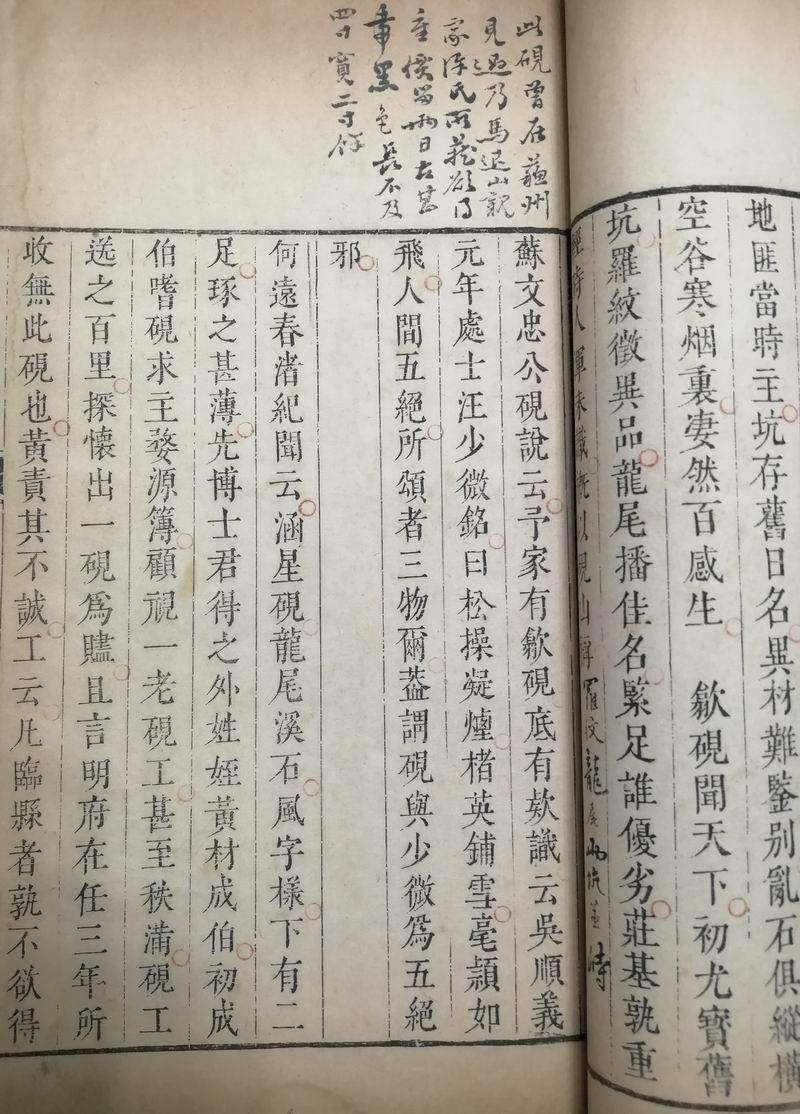 地匪當時主坑存舊日名異材難鑒别亂石俱縱橫
空谷寒烟裏凄然百感生　歙硯聞天下初尤寳舊
坑羅紋徵異品龍尾播佳名緊足誰優劣莊基孰重
此硯曾在蘇州
見過乃馬退山觀
家許氏所藏欲得
重價留兩日去甚
黑色長不及
四寸寛二寸餘
蘇文忠公硯說云予家有歙硯底有欵識云吳順義
元年處士汪少微銘曰松操凝煙楮英鋪雪毫穎如
飛人間五絕所頌者三物爾葢謂硯與少微爲五絕
邪
何遠春渚紀聞云涵星硯龍尾溪石風字樣下有二
足琢之甚薄先博士君得之外姓姪黃材成伯初成
伯嗜硯求主婺源簿顧視一老硯工甚至秩滿硯工
送之百里探懷出一硯爲贐且言明府在任三年所
收無此硯也黃責其不誠工云凡臨縣者孰不欲得